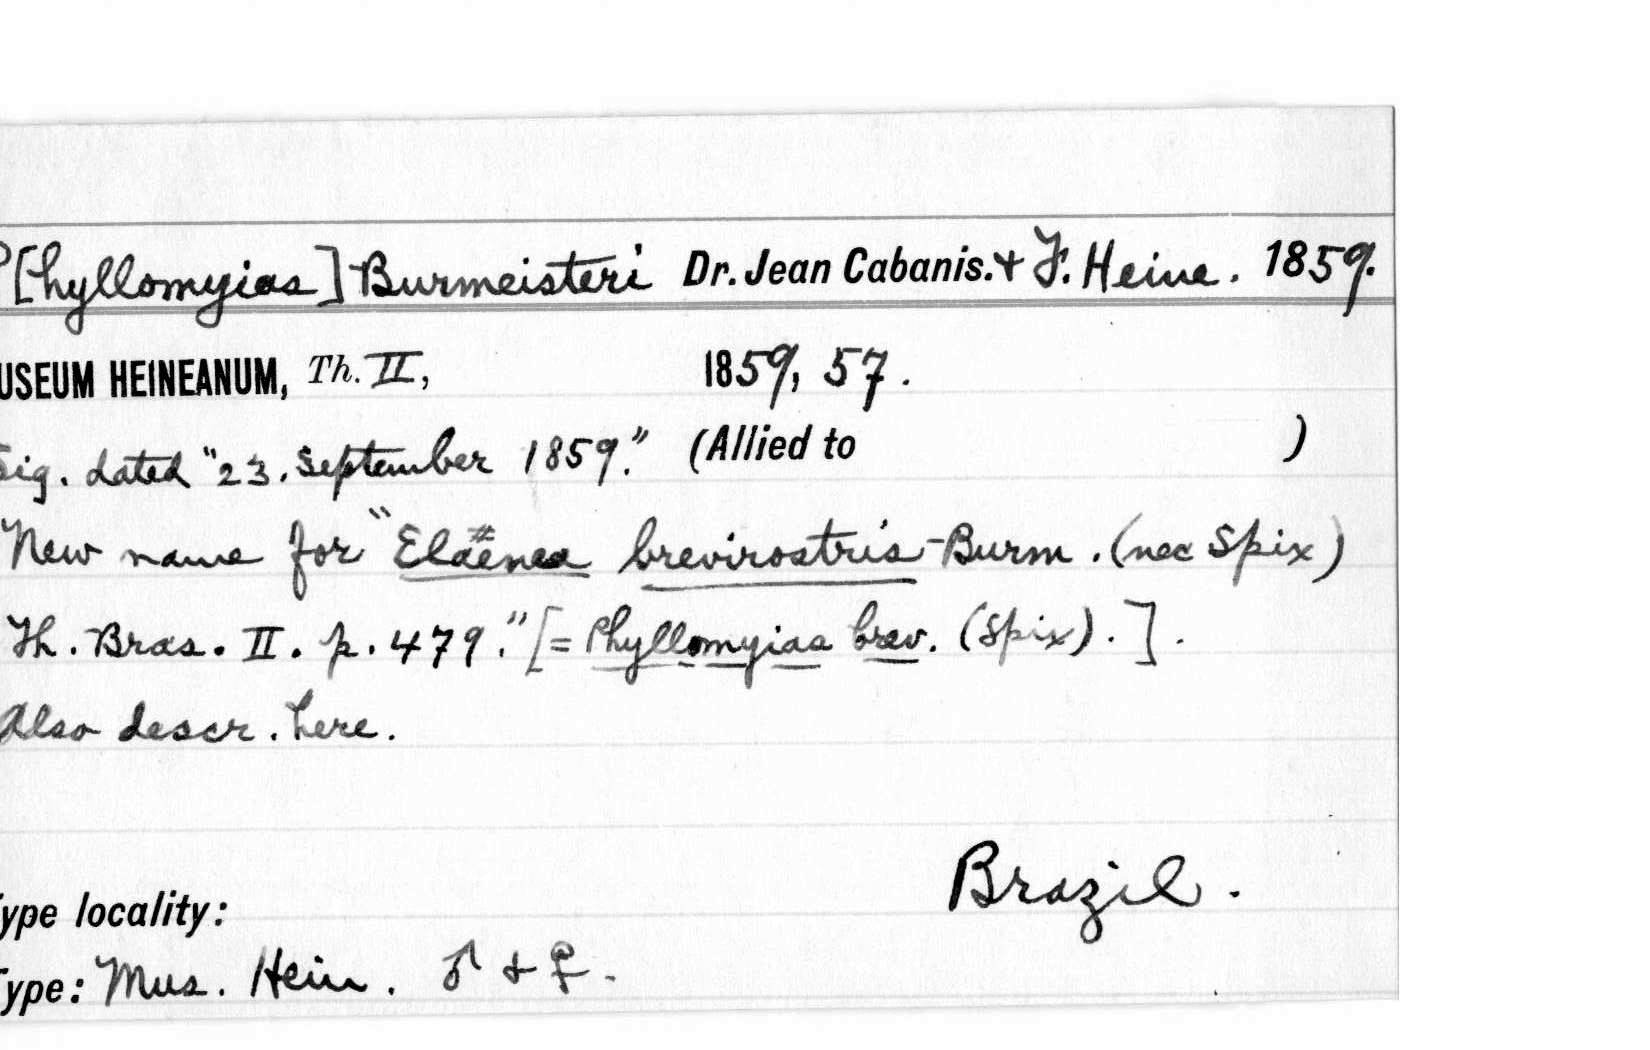 P[hyllomyias] Burmeisteri Dr. Jean Cabanis. + F. Heine. 1859.
USEUM HEINEANUM, Th. II, 1859, 57.
Sig. dated "23. September 1859." (Allied to )
New name for "Elaenea brevirostris Burm. (nec Spix)
Th. Bras. II. p. 479." [= Phyllomyias brev. (Spix). ].
Also descr. here.
Brazil.
ype locality:
Type: Mus. Hein. ♂ + ♀.